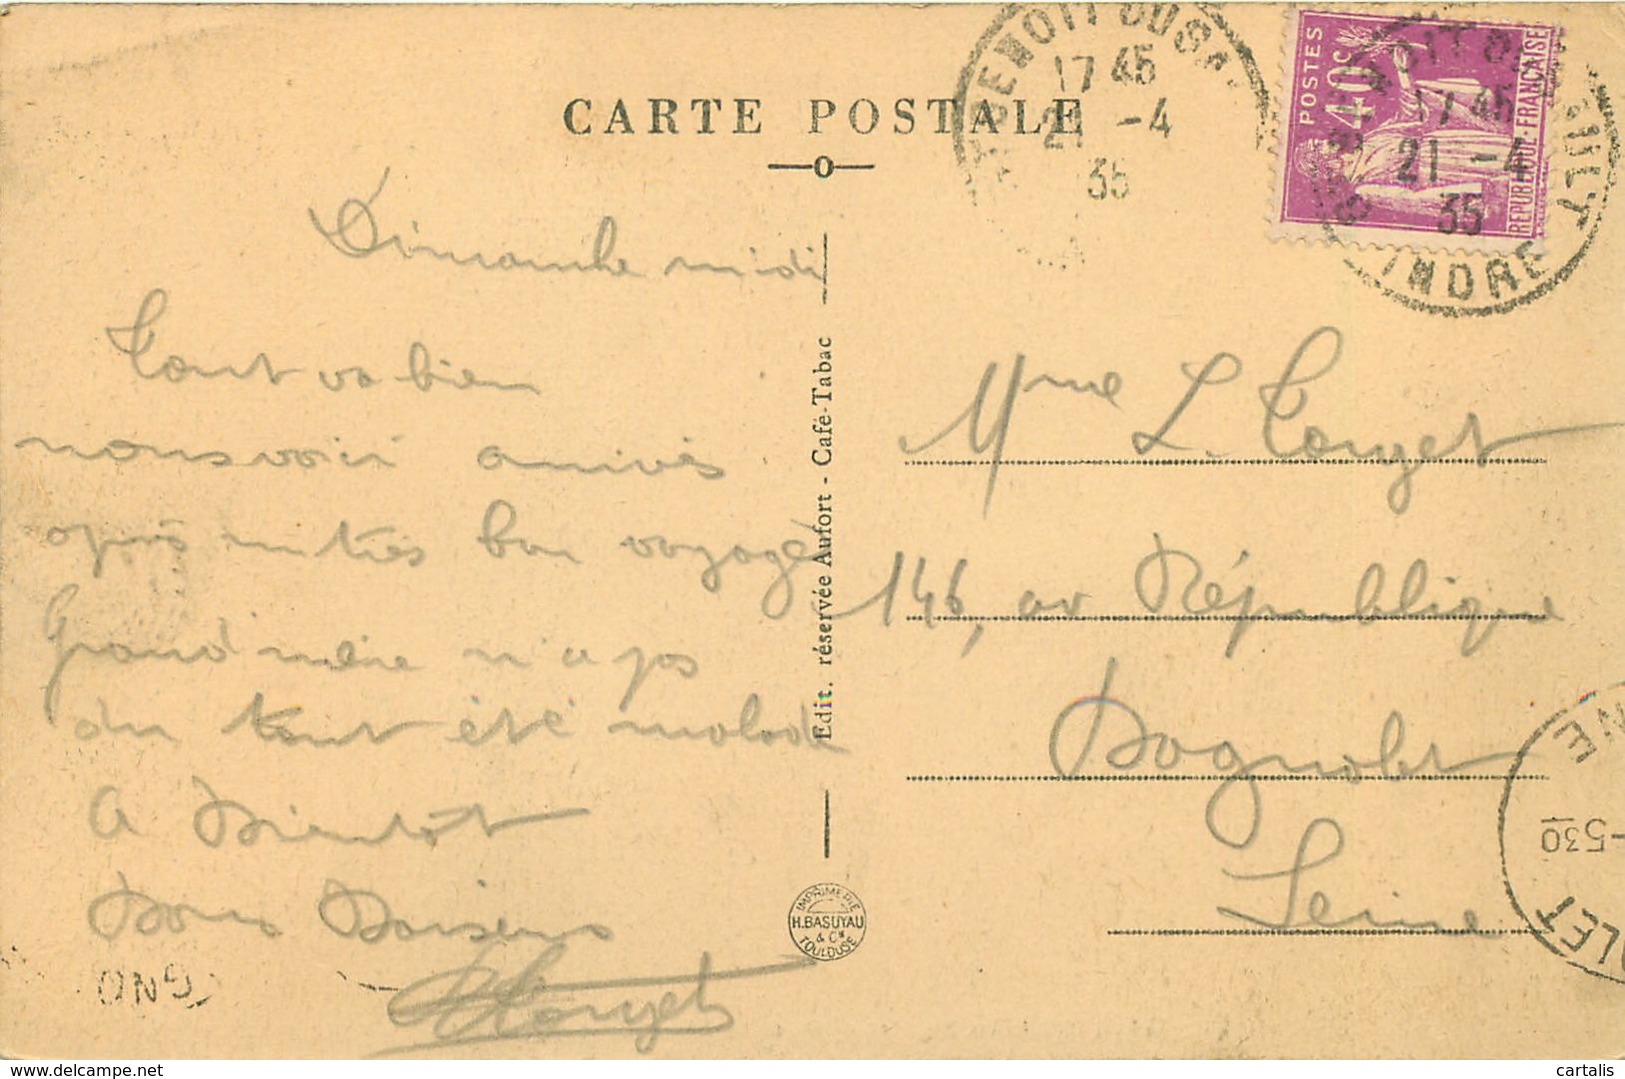 CARTE POSTALE
ST BENOIT DU SAULT
17 45
21 -4
35
POSTES
40c
REPUBLIQUE-FRANÇAISE
ST BENOIT DU SAULT
17 45
21 -4
35
INDRE
Dimanche midi
Tout va bien
nous voici arrivés
après un très bon voyage
Grand'mère n'a pas
du tout été malade
A Bientôt
Bons Baisers
Edit. réservée Aufort - Café-Tabac
IMPRIMERIE
H. BASUYAU
& Cie
TOULOUSE
Mme L. Touzet
146, av République
Bagnolet
Seine
OLET
-530
NE
delcampe.net
cartalis